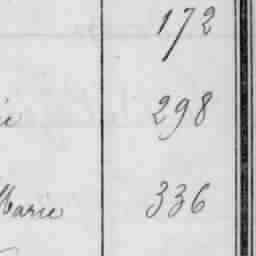 172
298
Marie 336